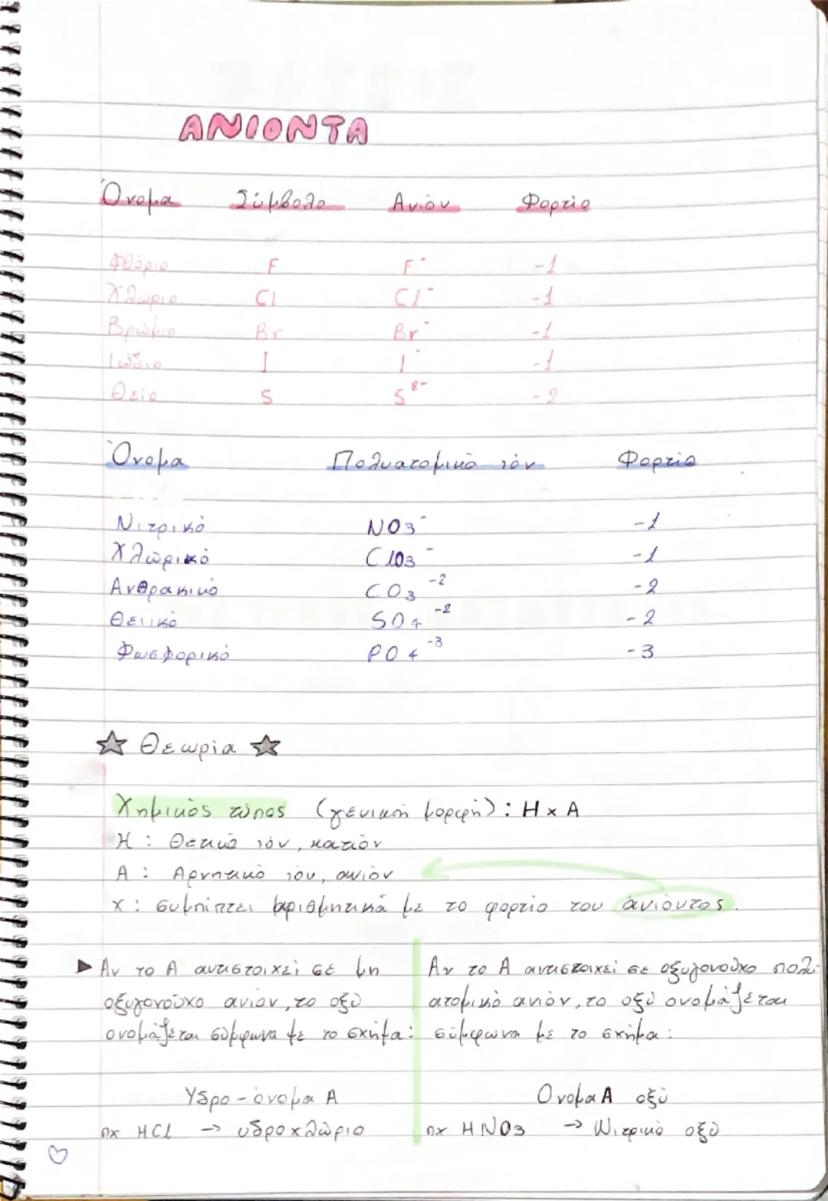 ΑΝΙΟΝΤΑ
Όνομα Σύμβολο Ανιόν Φορτίο
Φθόριο F F⁻ -1
Χλώριο Cl Cl⁻ -1
Βρώμιο Br Br⁻ -1
Ιώδιο I I⁻ -1
Θείο S S²⁻ -2
Όνομα Πολυατομικό ιόν Φορτίο
Νιτρικό NO3⁻ -1
Χλωρικό ClO3⁻ -1
Ανθρακικό CO3⁻² -2
Θειικό SO4⁻² -2
Φωσφορικό PO4⁻³ -3
Θεωρία
Χημικός τύπος (γενική μορφή): HxA
H: Θετικό ιόν, κατιόν
A: Αρνητικό ιόν, ανιόν
x: συμπίπτει αριθμητικά με το φορτίο του ανιόντος.
Αν το Α αντιστοιχεί σε μη
οξυγονούχο ανιόν, το οξύ
ονομάζεται σύμφωνα με το σχήμα:
Υδρο-όνομα Α
πχ HCl → υδροχλώριο
Αν το Α αντιστοιχεί σε οξυγονούχο πολυ
ατομικό ανιόν, το οξύ ονομάζεται
σύμφωνα με το σχήμα:
Όνομα Α οξύ
πχ HNO3 → Νιτρικό οξύ